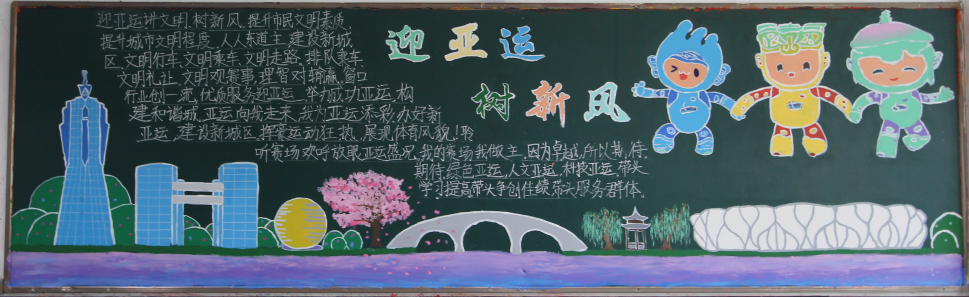 迎亚运
树新风
迎亚运讲文明,树新风,提升市民文明素质,
提升城市文明程度,人人东道主,建设新城
区,文明行车,文明乘车,文明走路,排队乘车,
文明礼让,文明观赛事,理智对输赢,窗口
行业创一流,优质服务迎亚运,举力成功亚运,构
建和谐城,亚运向我走来,我为亚运添彩,办好新
亚运,建设新城区,挥赛运动狂热,展现体育风貌!聆
听赛场欢呼放眼亚运盛况,我的赛场我做主,因为卓越,所以期待,
期待,绿色亚运,人文亚运,科技亚运,带头
学习提高带头争创佳绩带头服务群体。